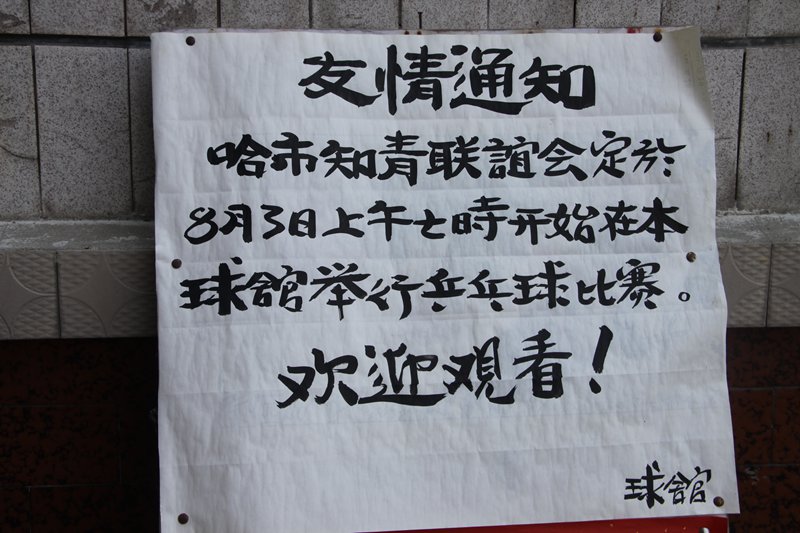 友情通知
哈市知青联誼会定於
8月3日上午七時开始在本
球舘举行乒乓球比赛。
欢迎观看！
球舘